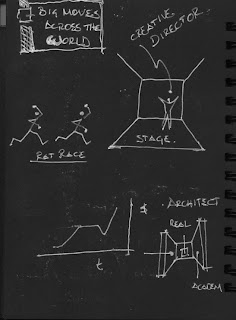 BIG MOVES
ACROSS THE
WORLD
CREATIVE
DIRECTOR
STAGE.
RAT RACE
$
t
ARCHITECT
REAL
ACADEM